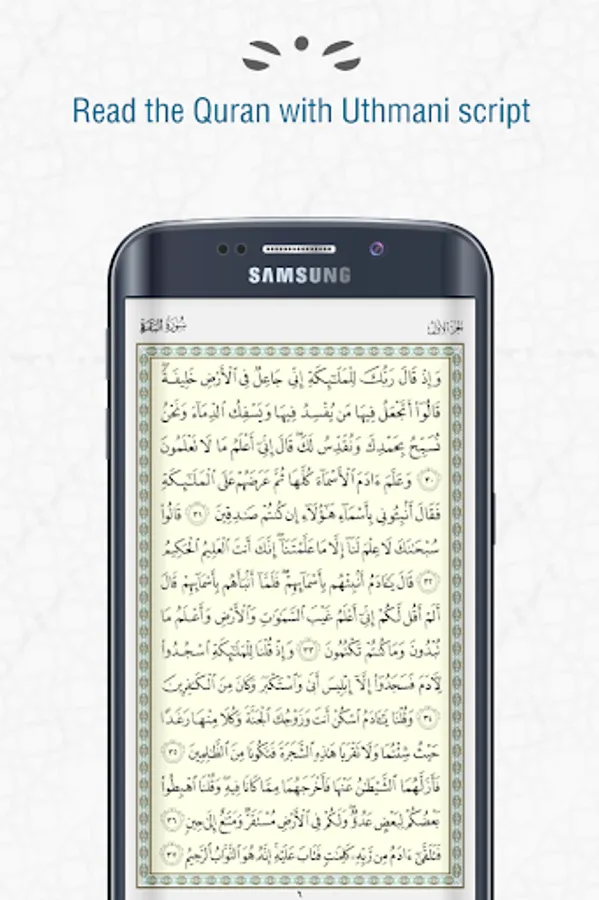 Read the Quran with Uthmani script
SAMSUNG
سُورَةُ البَقَرَةِ
الجُزءُ الأَوَّلُ
وَإِذۡ قَالَ رَبُّكَ لِلۡمَلَٰٓئِكَةِ إِنِّي جَاعِلٞ فِي ٱلۡأَرۡضِ خَلِيفَةٗۖ
قَالُوٓاْ أَتَجۡعَلُ فِيهَا مَن يُفۡسِدُ فِيهَا وَيَسۡفِكُ ٱلدِّمَآءَ وَنَحۡنُ
نُسَبِّحُ بِحَمۡدِكَ وَنُقَدِّسُ لَكَۖ قَالَ إِنِّيٓ أَعۡلَمُ مَا لَا تَعۡلَمُونَ
٣٠ وَعَلَّمَ ءَادَمَ ٱلۡأَسۡمَآءَ كُلَّهَا ثُمَّ عَرَضَهُمۡ عَلَى ٱلۡمَلَٰٓئِكَةِ
فَقَالَ أَنۢبِـُٔونِي بِأَسۡمَآءِ هَٰٓؤُلَآءِ إِن كُنتُمۡ صَٰدِقِينَ ٣١ قَالُواْ
سُبۡحَٰنَكَ لَا عِلۡمَ لَنَآ إِلَّا مَا عَلَّمۡتَنَآۖ إِنَّكَ أَنتَ ٱلۡعَلِيمُ ٱلۡحَكِيمُ
٣٢ قَالَ يَٰٓـَٔادَمُ أَنۢبِئۡهُم بِأَسۡمَآئِهِمۡۖ فَلَمَّآ أَنۢبَأَهُم بِأَسۡمَآئِهِمۡ قَالَ
أَلَمۡ أَقُل لَّكُمۡ إِنِّيٓ أَعۡلَمُ غَيۡبَ ٱلسَّمَٰوَٰتِ وَٱلۡأَرۡضِ وَأَعۡلَمُ مَا
تُبۡدُونَ وَمَا كُنتُمۡ تَكۡتُمُونَ ٣٣ وَإِذۡ قُلۡنَا لِلۡمَلَٰٓئِكَةِ ٱسۡجُدُواْ
لِأٓدَمَ فَسَجَدُوٓاْ إِلَّآ إِبۡلِيسَ أَبَىٰ وَٱسۡتَكۡبَرَ وَكَانَ مِنَ ٱلۡكَٰفِرِينَ
٣٤ وَقُلۡنَا يَٰٓـَٔادَمُ ٱسۡكُنۡ أَنتَ وَزَوۡجُكَ ٱلۡجَنَّةَ وَكُلَا مِنۡهَا رَغَدًا
حَيۡثُ شِئۡتُمَا وَلَا تَقۡرَبَا هَٰذِهِ ٱلشَّجَرَةَ فَتَكُونَا مِنَ ٱلظَّٰلِمِينَ ٣٥
فَأَزَلَّهُمَا ٱلشَّيۡطَٰنُ عَنۡهَا فَأَخۡرَجَهُمَا مِمَّا كَانَا فِيهِۖ وَقُلۡنَا ٱهۡبِطُواْ
بَعۡضُكُمۡ لِبَعۡضٍ عَدُوّٞۖ وَلَكُمۡ فِي ٱلۡأَرۡضِ مُسۡتَقَرّٞ وَمَتَٰعٌ إِلَىٰ حِينٖ ٣٦
فَتَلَقَّىٰٓ ءَادَمُ مِن رَّبِّهِۦ كَلِمَٰتٖ فَتَابَ عَلَيۡهِۚ إِنَّهُۥ هُوَ ٱلتَّوَّابُ ٱلرَّحِيمُ ٣٧
٦